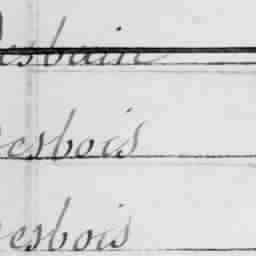 esbain
esbois
esbois